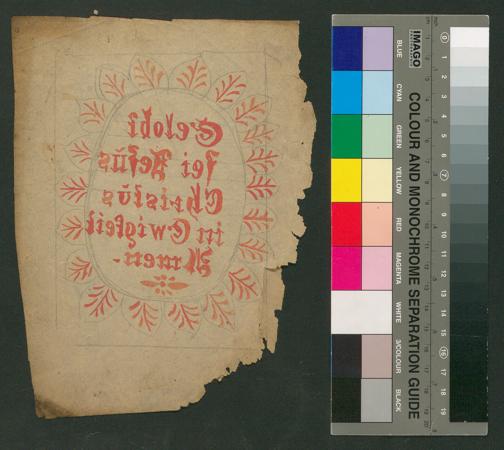 Gelobt
sei Jesŭs
Christŭs
in Ewigkeit
Amen.-
IMAGO
COLOUR AND MONOCHROME SEPARATION GUIDE
BLUE
CYAN
GREEN
YELLOW
RED
MAGENTA
WHITE
3/COLOUR
BLACK
0
1
2
3
4
5
6
7
8
9
10
11
12
13
14
15
16
17
18
19